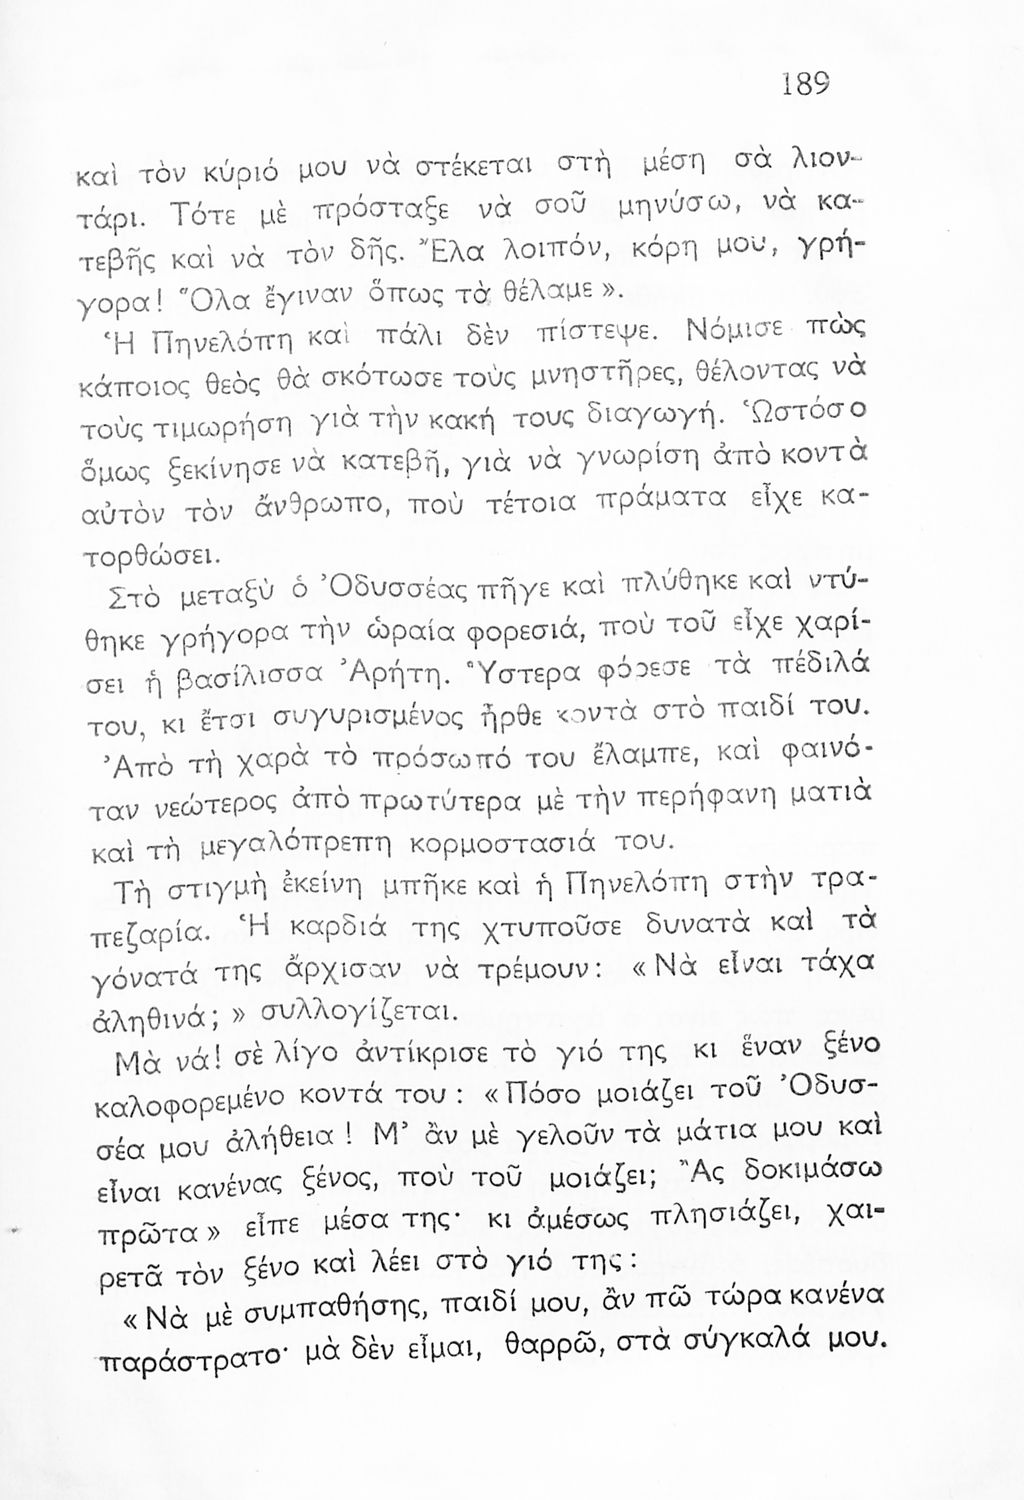 189
καὶ τὸν κύριό μου νὰ στέκεται στὴ μέση σὰ λιον-
τάρι. Τότε μὲ πρόσταξε νὰ σοῦ μηνύσω, νὰ κα-
τεβῆς καὶ νὰ τὸν δῆς. Ἔλα λοιπόν, κόρη μου, γρή-
γορα! Ὅλα ἔγιναν ὅπως τὰ θέλαμε».
Ἡ Πηνελόπη καὶ πάλι δὲν πίστεψε. Νόμισε πὼς
κάποιος θεὸς θὰ σκότωσε τοὺς μνηστῆρες, θέλοντας νὰ
τοὺς τιμωρήση γιὰ τὴν κακή τους διαγωγή. Ὡστόσο
ὅμως ξεκίνησε νὰ κατεβῆ, γιὰ νὰ γνωρίση ἀπὸ κοντὰ
αὐτὸν τὸν ἄνθρωπο, ποὺ τέτοια πράματα εἶχε κα-
τορθώσει.
Στὸ μεταξὺ ὁ Ὀδυσσέας πῆγε καὶ πλύθηκε καὶ ντύ-
θηκε γρήγορα τὴν ὡραία φορεσιά, ποὺ τοῦ εἶχε χαρί-
σει ἡ βασίλισσα Ἀρήτη. Ὕστερα φόρεσε τὰ πέδιλά
του, κι ἔτσι συγυρισμένος ἦρθε κοντὰ στὸ παιδί του.
Ἀπὸ τὴ χαρὰ τὸ πρόσωπό του ἔλαμπε, καὶ φαινό-
ταν νεώτερος ἀπὸ πρωτύτερα μὲ τὴν περήφανη ματιὰ
καὶ τὴ μεγαλόπρεπη κορμοστασιά του.
Τὴ στιγμὴ ἐκείνη μπῆκε καὶ ἡ Πηνελόπη στὴν τρα-
πεζαρία. Ἡ καρδιά της χτυποῦσε δυνατὰ καὶ τὰ
γόνατά της ἄρχισαν νὰ τρέμουν: «Νὰ εἶναι τάχα
ἀληθινά;» συλλογίζεται.
Μὰ νά! σὲ λίγο ἀντίκρισε τὸ γιό της κι ἕναν ξένο
καλοφορεμένο κοντά του: «Πόσο μοιάζει τοῦ Ὀδυσ-
σέα μου ἀλήθεια! Μ’ ἂν μὲ γελοῦν τὰ μάτια μου καὶ
εἶναι κανένας ξένος, ποὺ τοῦ μοιάζει; Ἂς δοκιμάσω
πρῶτα» εἶπε μέσα της· κι ἀμέσως πλησιάζει, χαι-
ρετᾶ τὸν ξένο καὶ λέει στὸ γιό της:
«Νὰ μὲ συμπαθήσης, παιδί μου, ἂν πῶ τώρα κανένα
παράστρατο· μὰ δὲν εἶμαι, θαρρῶ, στὰ σύγκαλά μου.